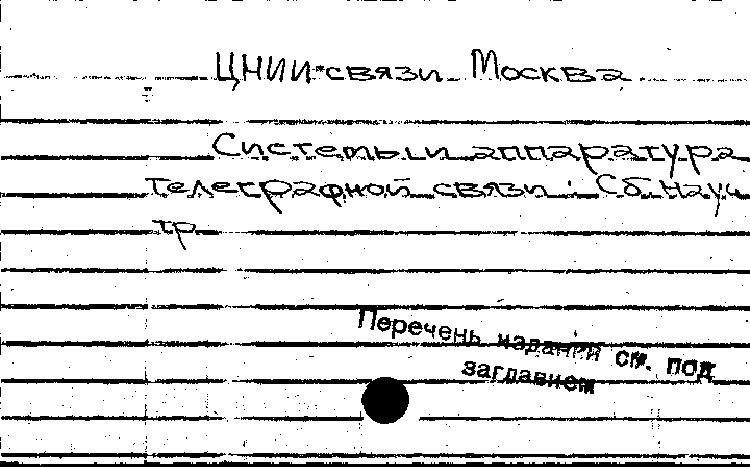 ЦНИИ связи. Москва
Системы и аппаратура
телеграфной связи : Сб. науч
тр.
Перечень изданий см. под
заглавием